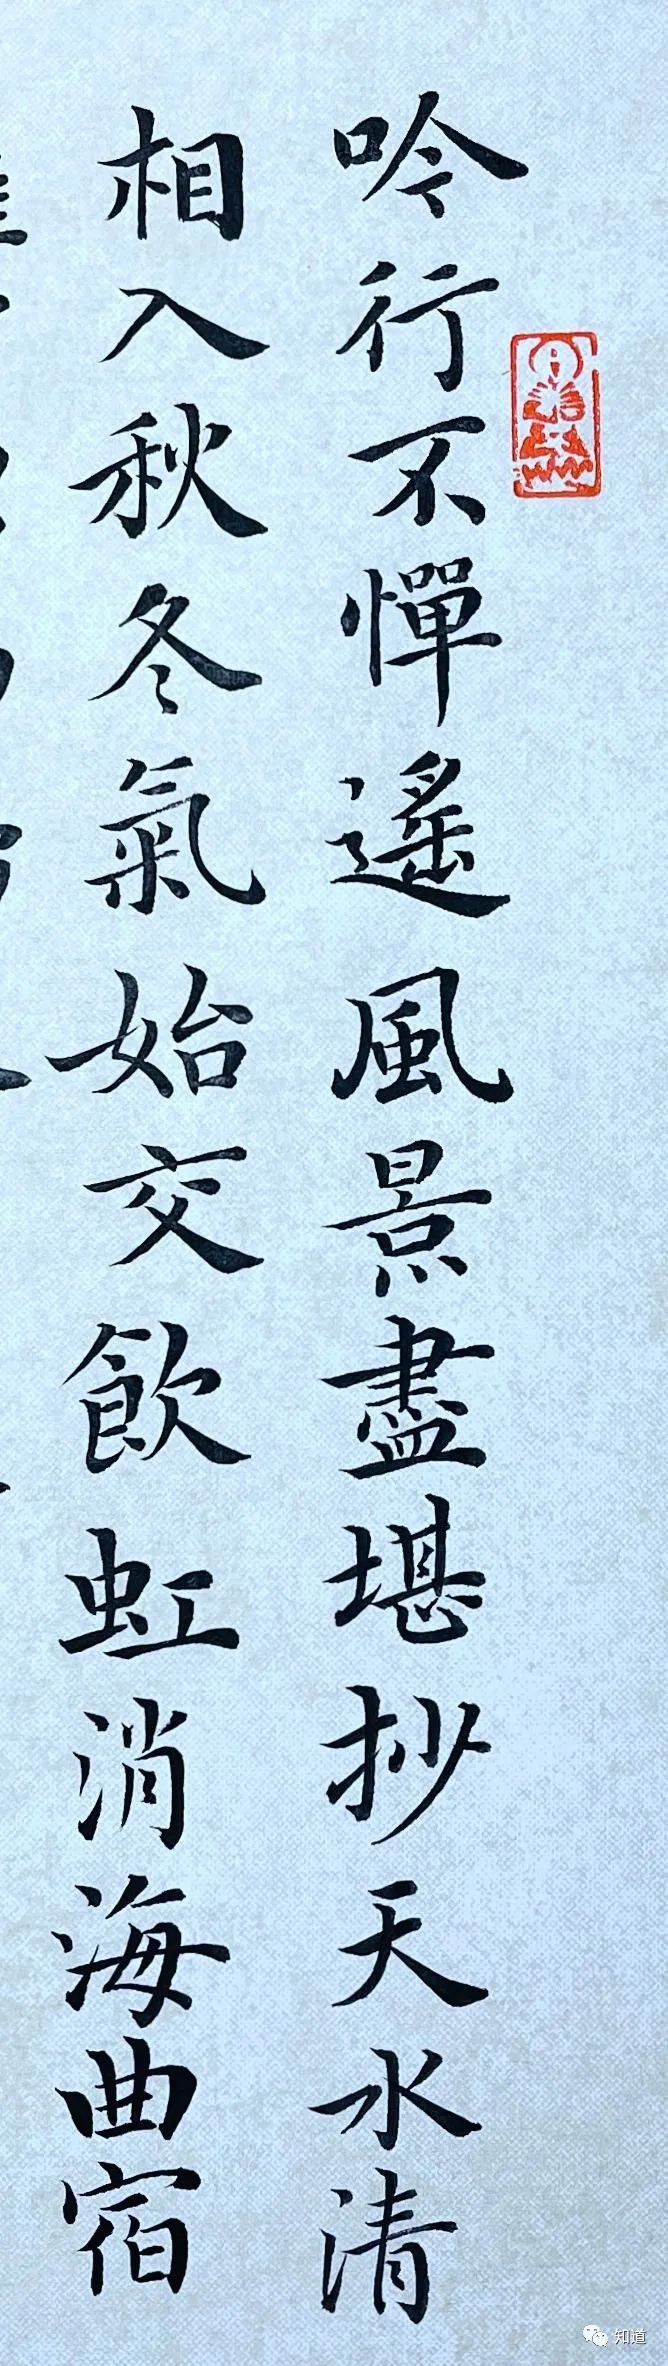 吟行不憚遙風景盡堪抄天水清
相入秋冬氣始交飲虹消海曲宿
知道